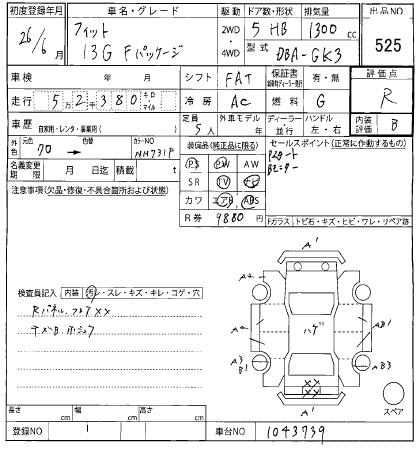 初度登録年月 車名・グレード 駆動 ドア数・形状 排気量 出品NO
26/6月 フィット 2WD 5 HB 1300cc 525
13G Fパッケージ 4WD 型式 DBA-GK3
車検 年 月 シフト FAT 保証書 有・無 評価点
走行 52380 キロ マイル 冷房 AC 燃料 G R
車歴 自家用・レンタ・事業用( ) 定員 5人 外車モデル 年 ディーラー 並行 ハンドル 左・右 内装 B
外色 元色 クロ → 色替 カラーNO NH731P 装備品(純正品に限る) セールスポイント(正常に作動するもの)
PS PW AW Pスタート
名義変更期限 月 日迄 積載 t SR TV ナビ Bモニター
注意事項(欠品・修復・不具合箇所および状態) カワ エアB ABS
R券 9880円 Fガラス トビ石・キズ・ヒビ・ワレ・リペア跡
A1
A2
検査員記入 内装 汚レ・スレ・キズ・キレ・コゲ・穴
ハゲ
A2 AB1
A3 B1 AB3
XX
XX
A1 スペア
長さ cm 幅 cm 高さ cm
登録NO 1 車台NO 1043739